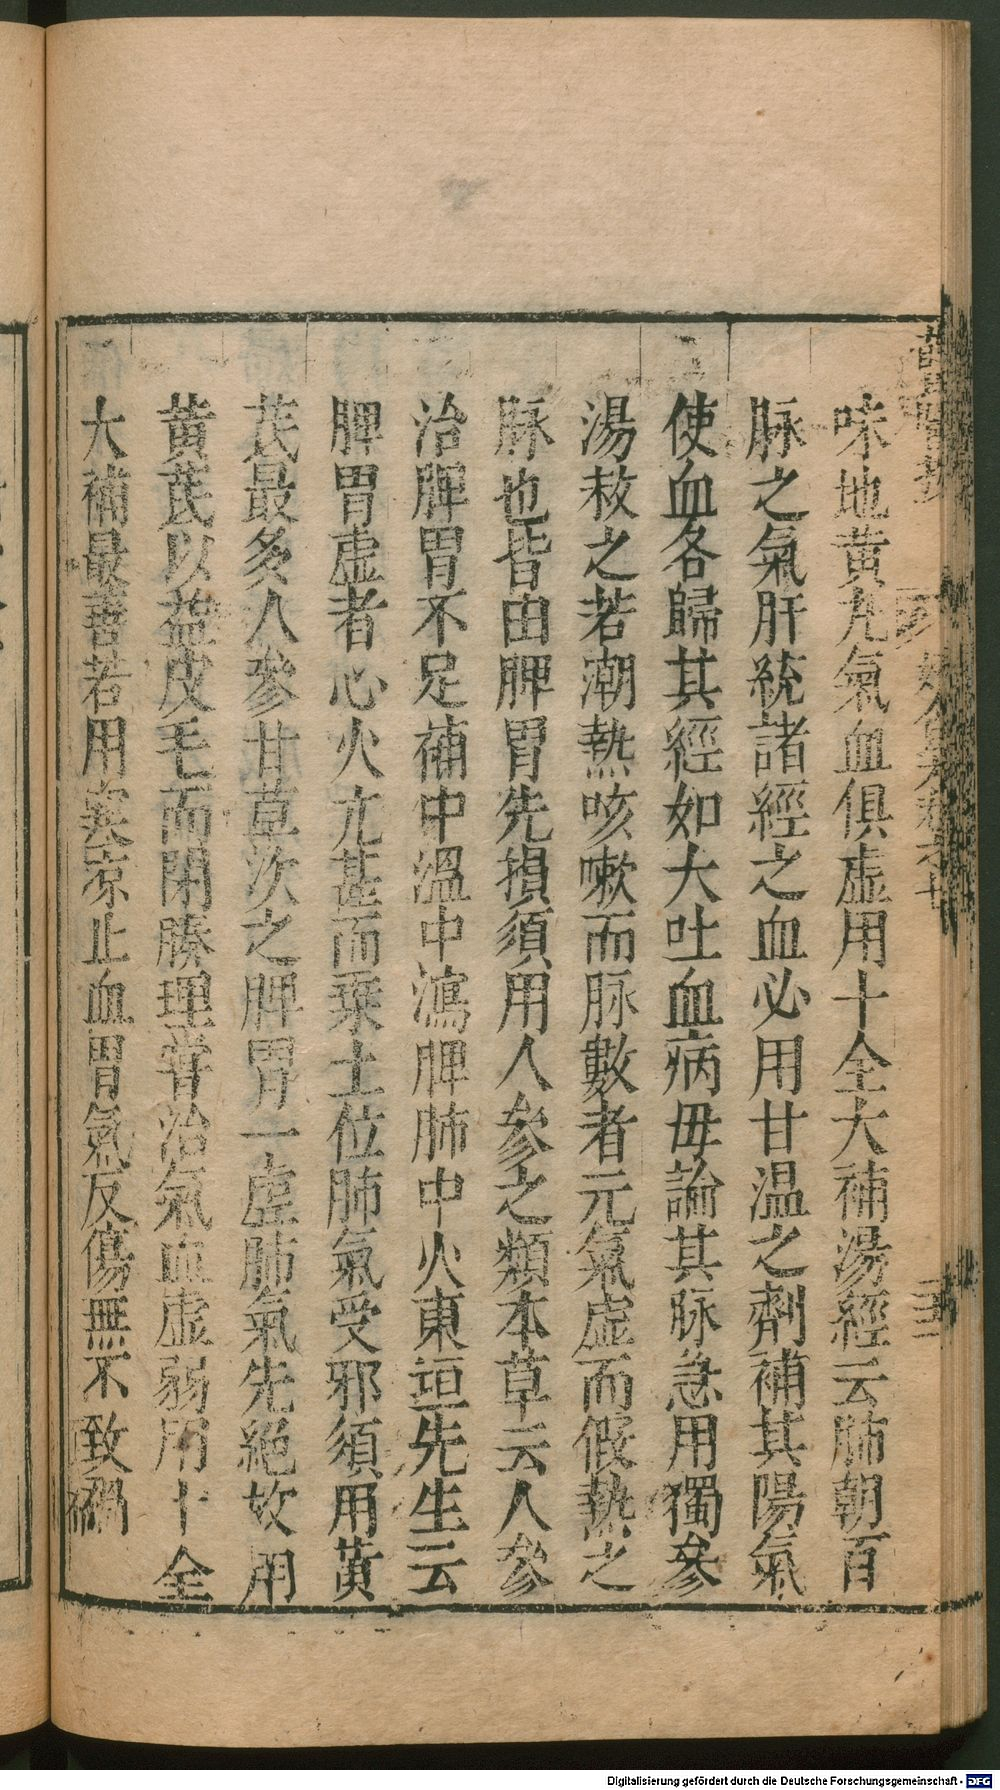 味地黄丸氣血俱虛用十全大補湯經云肺朝百
脉之氣肝統諸經之血必用甘温之劑補其陽氣
使血各歸其經如大吐血病毋論其脉急用獨參
湯救之若潮熱咳嗽而脉數者元氣虛而假熱之
脉也皆由脾胃先損須用人參之類本草云人參
治脾胃不足補中溫中瀉脾肺中火東垣先生云
脾胃虛者心火亢甚而乘土位肺氣受邪須用黃
芪最多人參甘草次之脾胃一虛肺氣先絕故用
黄芪以益皮毛而閉腠理嘗治氣血虛弱用十全
大補最善若用寒凉止血胃氣反傷無不致禍
Digitalisierung gefördert durch die Deutsche Forschungsgemeinschaft - DFG